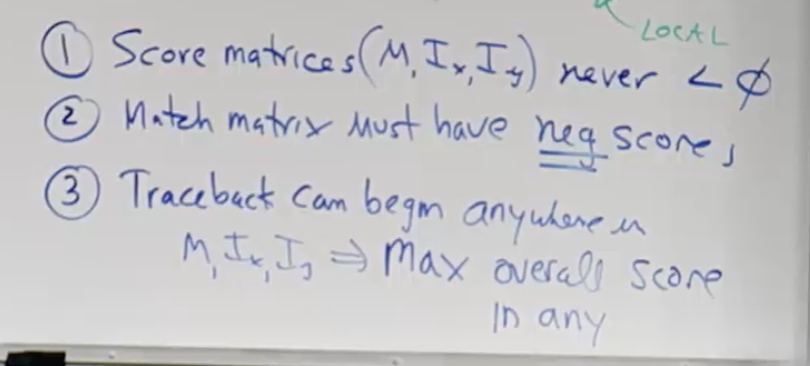 LOCAL
① Score matrices (M, Ix, Iy) never < ϕ
② Match matrix must have neg scores
③ Traceback can begin anywhere in
M, Ix, Iy ⇒ Max overall score
in any